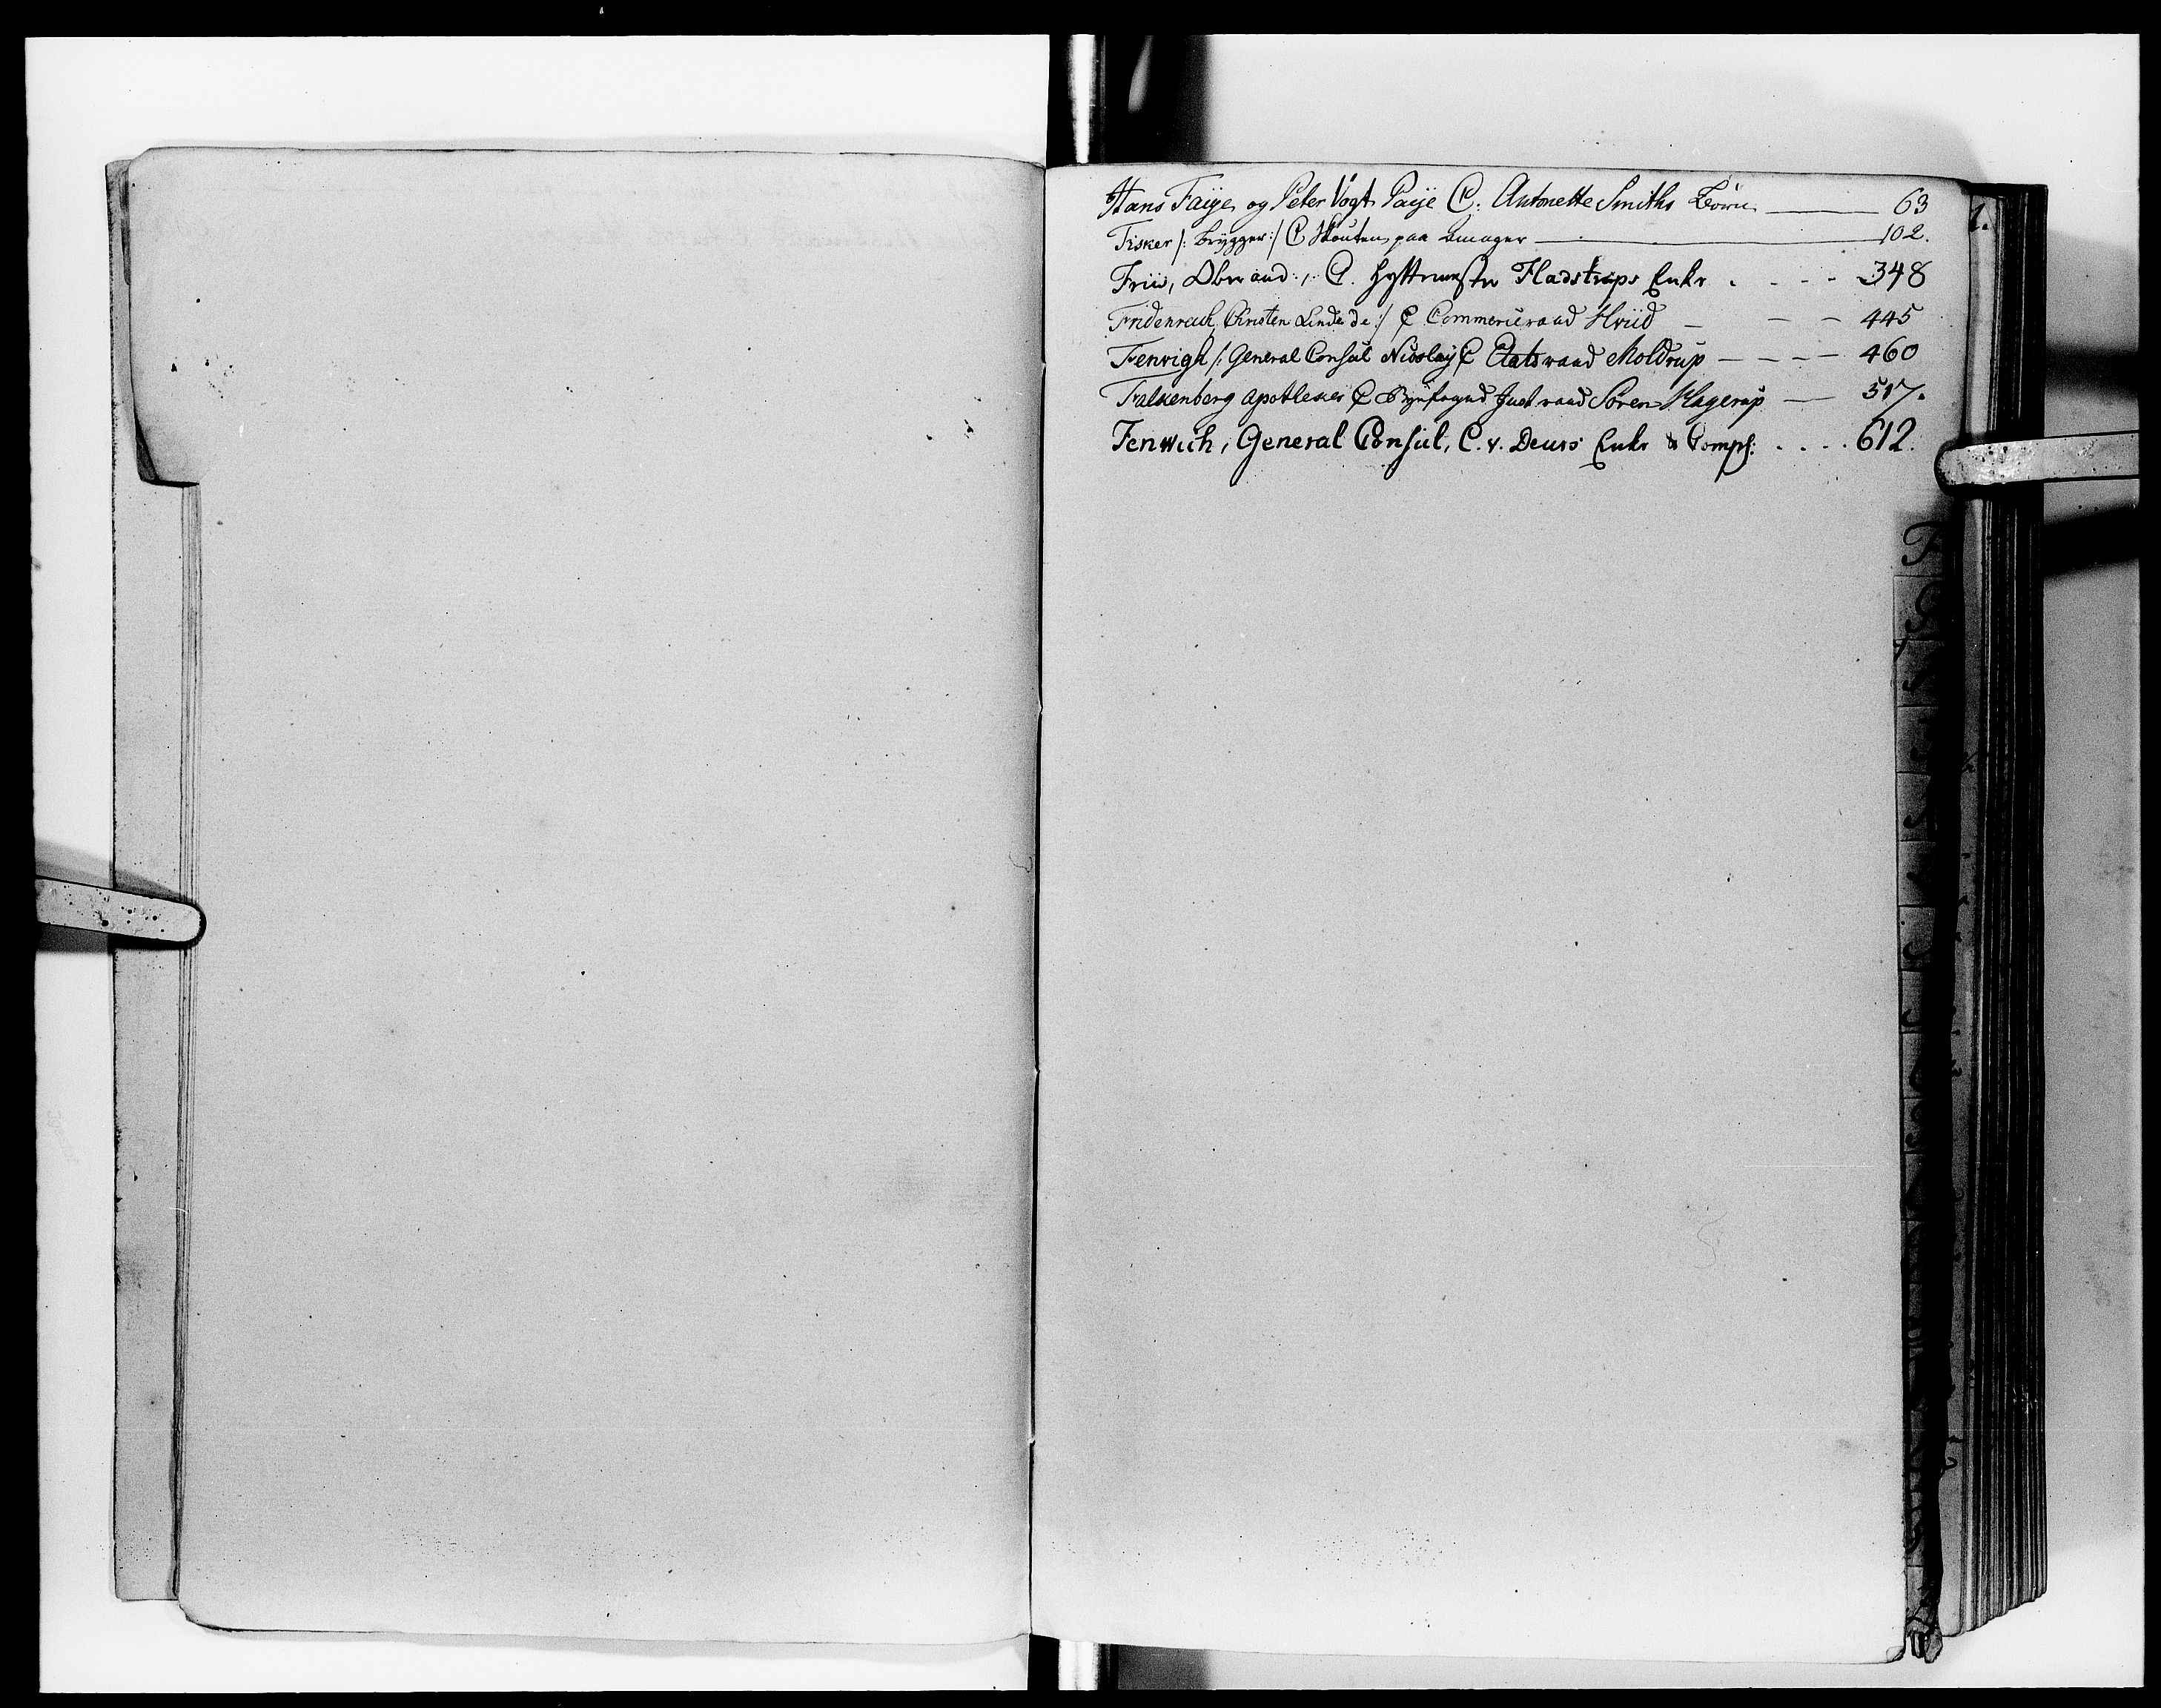 Hans Faÿe og Peter Vogt Paÿe C: Antonette Smiths Börn — 63
Fisker /: Brÿgger :/ C Skouten paa Amager — 102.
Friis, Obr: aud:, C. Hyttemester Fladstrups Enke . - - - 348
Fridenreich, Christen Linde de :/ C Commerceraad Hviid - - - 445
Fenvigh /: General Consul Nicolaÿ C Etatsraad Moldrup - - - - 460
Falkenberg Apotheker C Bÿefoged Justraad Sören Hagerup — 517.
Fenwich, General Consul, C. v. Deurs Enke & Comp: . . . . 612.